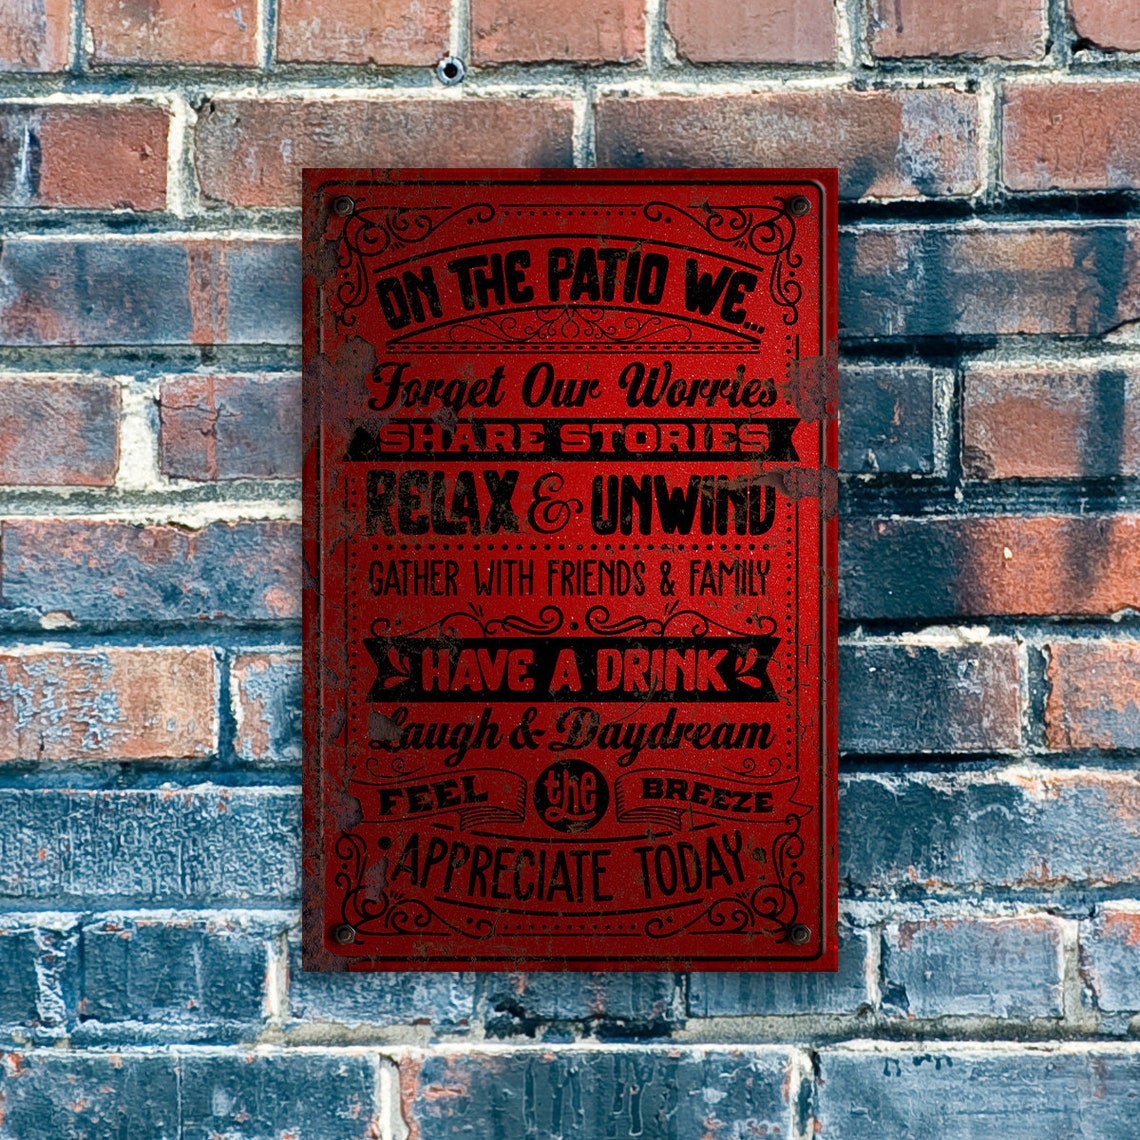 ON THE PATIO WE...
Forget Our Worries
SHARE STORIES
RELAX & UNWIND
GATHER WITH FRIENDS & FAMILY
HAVE A DRINK
Laugh & Daydream
FEEL the BREEZE
APPRECIATE TODAY